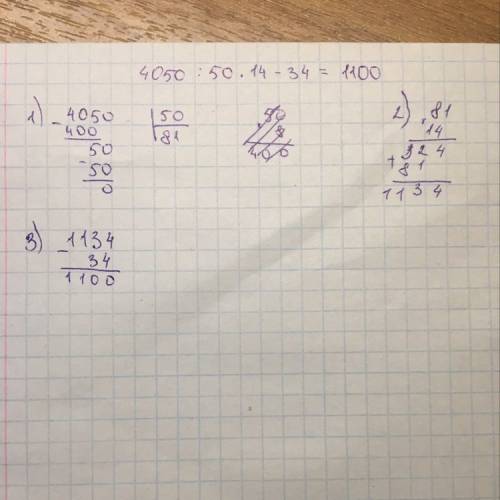 4050 : 50 · 14 - 34 = 1100
1)
- 4050 | 50
400 | 81
50
- 50
0
50
8
400
2)
· 81
14
324
+ 81
1134
3)
- 1134
34
1100